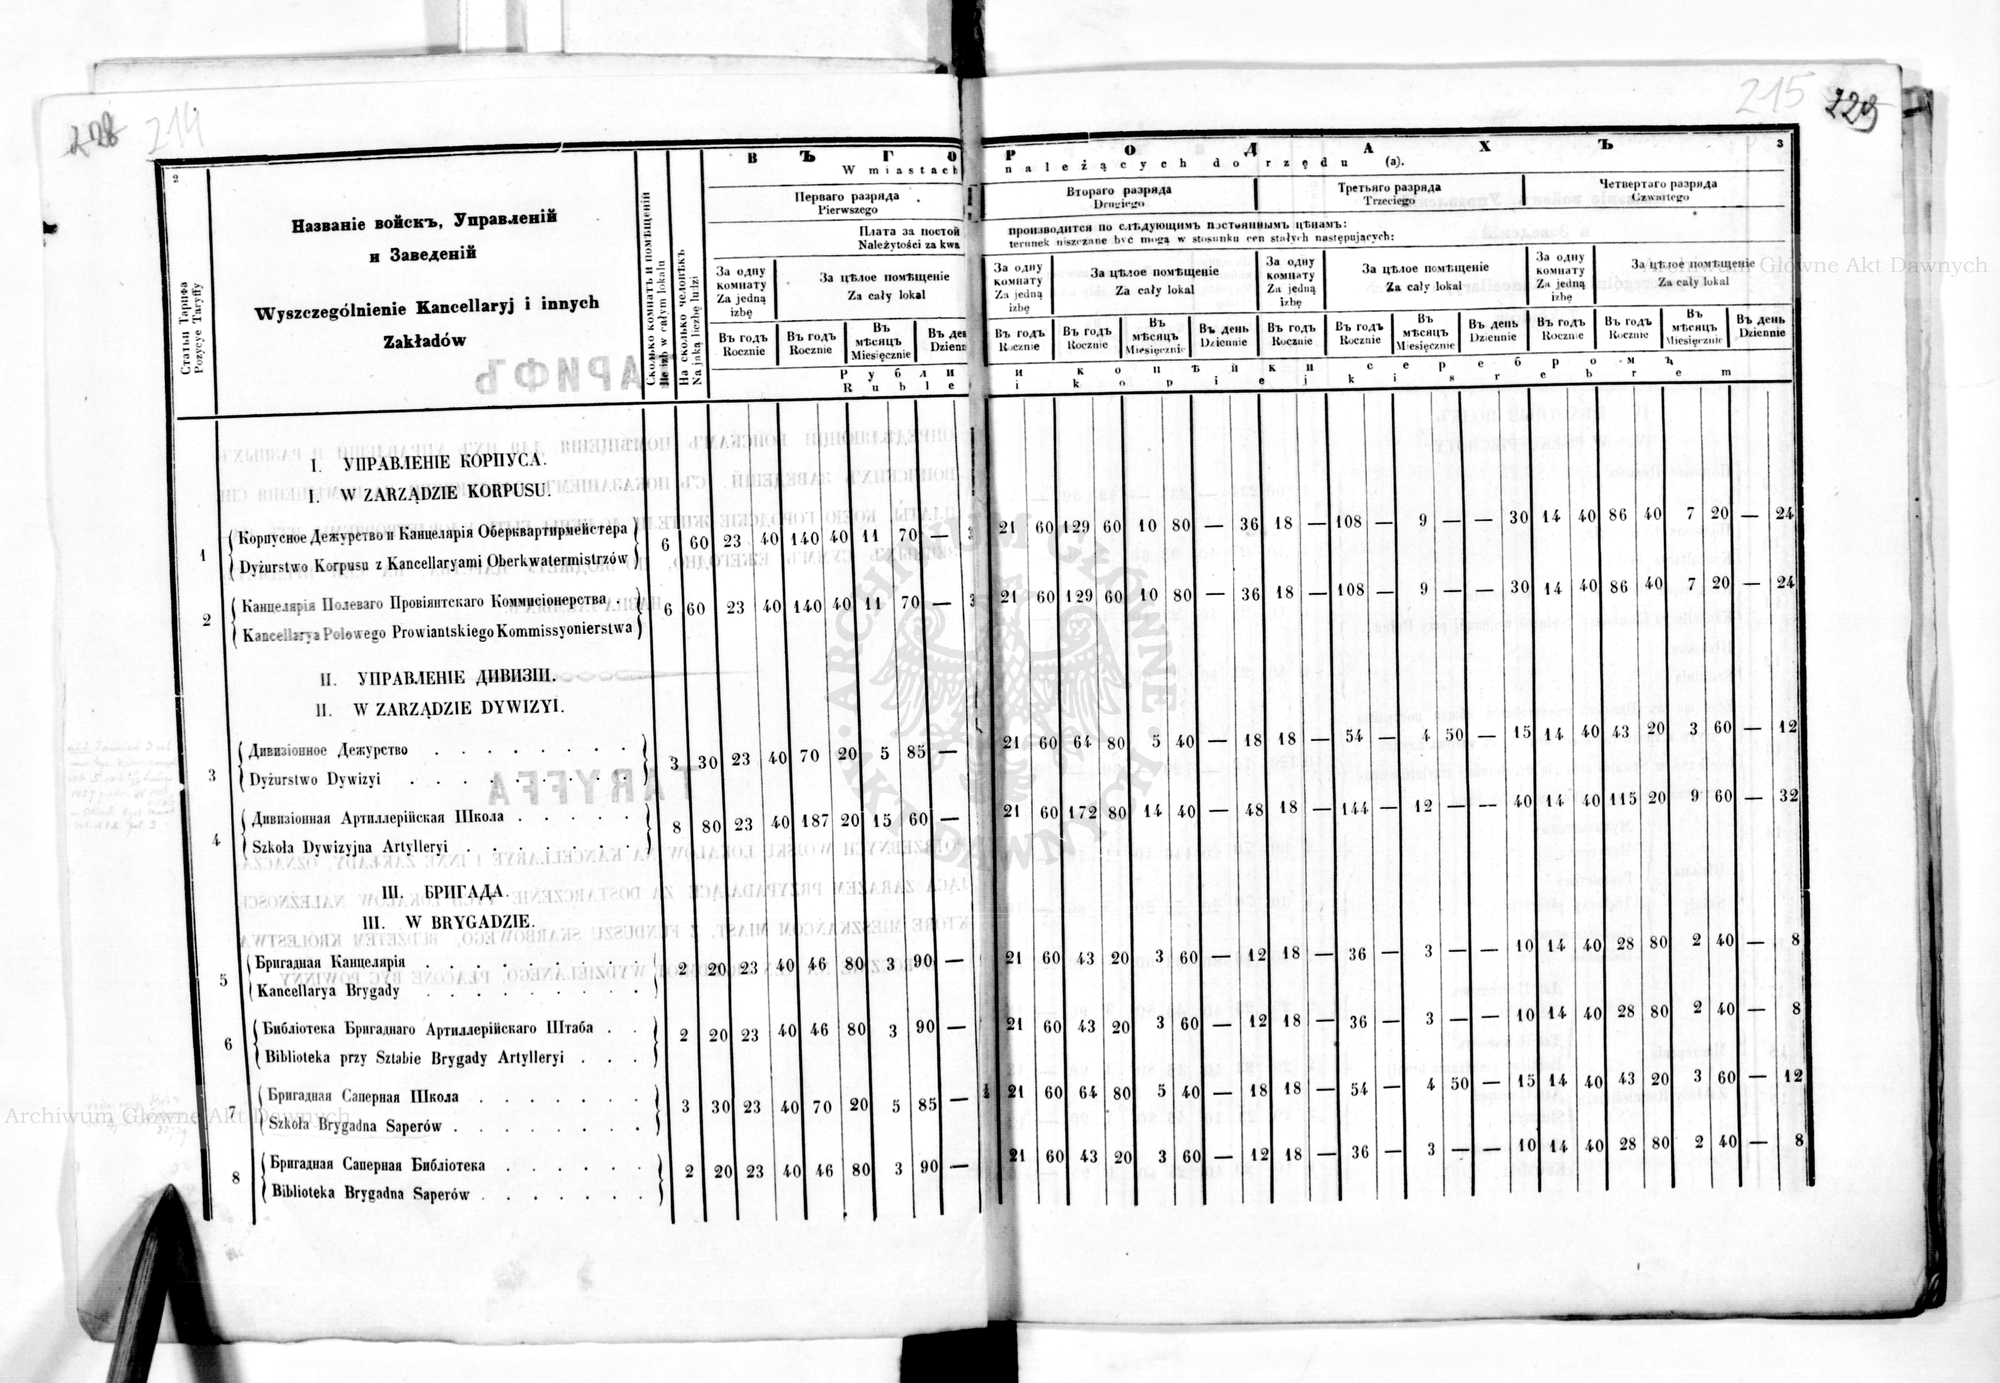 214
215
229
2
3
Статьи Тарифа
Pozycye Taryffy
Названіе войскъ, Управленій
и Заведеній
Wyszczególnienie Kancellaryj i innych
Zakładów
Сколько комнатъ въ помѣщеніи
Ile izb w całym lokalu
На сколько человѣкъ
Na jaką liczbę ludzi
ВЪ ГОРОДАХЪ
W miastach należących do rzędu (a).
Перваго разряда
Pierwszego
Втораго разряда
Drugiego
Третьяго разряда
Trzeciego
Четвертаго разряда
Czwartego
Плата за постой производится по слѣдующимъ постояннымъ цѣнамъ:
Należytości za kwaterunek uiszczane być mogą w stosunku cen stałych następujących:
За одну комнату За цѣлое помѣщеніе За одну комнату За цѣлое помѣщеніе За одну комнату За цѣлое помѣщеніе За одну комнату За цѣлое помѣщеніе
Za jedną izbę Za cały lokal Za jedną izbę Za cały lokal Za jedną izbę Za cały lokal Za jedną izbę Za cały lokal
Въ годъ Въ годъ Въ мѣсяцъ Въ ден Въ годъ Въ годъ Въ мѣсяцъ Въ день Въ годъ Въ годъ Въ мѣсяцъ Въ день Въ годъ Въ годъ Въ мѣсяцъ Въ день
Rocznie Rocznie Miesięcznie Dzienn Rocznie Rocznie Miesięcznie Dziennie Rocznie Rocznie Miesięcznie Dziennie Rocznie Rocznie Miesięcznie Dziennie
Рубли и копѣйки серебромъ
Ruble i kopiejki srebrem
I. УПРАВЛЕНІЕ КОРПУСА.
I. W ZARZĄDZIE KORPUSU.
Корпусное Дежурство и Канцелярія Оберквартирмейстера
1 6 60 23 40 140 40 11 70 — 3 21 60 129 60 10 80 — 36 18 — 108 — 9 — — 30 14 40 86 40 7 20 — 24
Dyżurstwo Korpusu z Kancellaryami Oberkwatermistrzów
Канцелярія Полеваго Провіянтскаго Коммисіонерства .
2 6 60 23 40 140 40 11 70 — 3 21 60 129 60 10 80 — 36 18 — 108 — 9 — — 30 14 40 86 40 7 20 — 24
Kancellarya Polowego Prowiantskiego Kommissyonierstwa
II. УПРАВЛЕНІЕ ДИВИЗІИ.
II. W ZARZĄDZIE DYWIZYI.
Дивизіонное Дежурство . . . . . . .
3 3 30 23 40 70 20 5 85 — 21 60 64 80 5 40 — 18 18 — 54 — 4 50 — 15 14 40 43 20 3 60 — 12
Dyżurstwo Dywizyi . . . . . . . .
Дивизіонная Артиллерійская Школа . . . . .
4 8 80 23 40 187 20 15 60 — 21 60 172 80 14 40 — 48 18 — 144 — 12 — — 40 14 40 115 20 9 60 — 32
Szkoła Dywizyjna Artylleryi . . . . . . .
III. БРИГАДА.
III. W BRYGADZIE.
Бригадная Канцелярія . . . . . . . . .
5 2 20 23 40 46 80 3 90 — 21 60 43 20 3 60 — 12 18 — 36 — 3 — — 10 14 40 28 80 2 40 — 8
Kancellarya Brygady . . . . . . . . .
Библіотека Бригаднаго Артиллерійскаго Штаба . .
6 2 20 23 40 46 80 3 90 — 21 60 43 20 3 60 — 12 18 — 36 — 3 — — 10 14 40 28 80 2 40 — 8
Biblioteka przy Sztabie Brygady Artylleryi . . .
Бригадная Саперная Школа . . . . . . .
7 3 30 23 40 70 20 5 85 — 21 60 64 80 5 40 — 18 18 — 54 — 4 50 — 15 14 40 43 20 3 60 — 12
Szkoła Brygadna Saperów . . . . . . . .
Бригадная Саперная Библіотека . . . . . .
8 2 20 23 40 46 80 3 90 — 21 60 43 20 3 60 — 12 18 — 36 — 3 — — 10 14 40 28 80 2 40 — 8
Biblioteka Brygadna Saperów . . . . . . .
ARCHIWUM GŁÓWNE AKT DAWNYCH
Archiwum Główne Akt Dawnych
Archiwum Główne Akt Dawnych